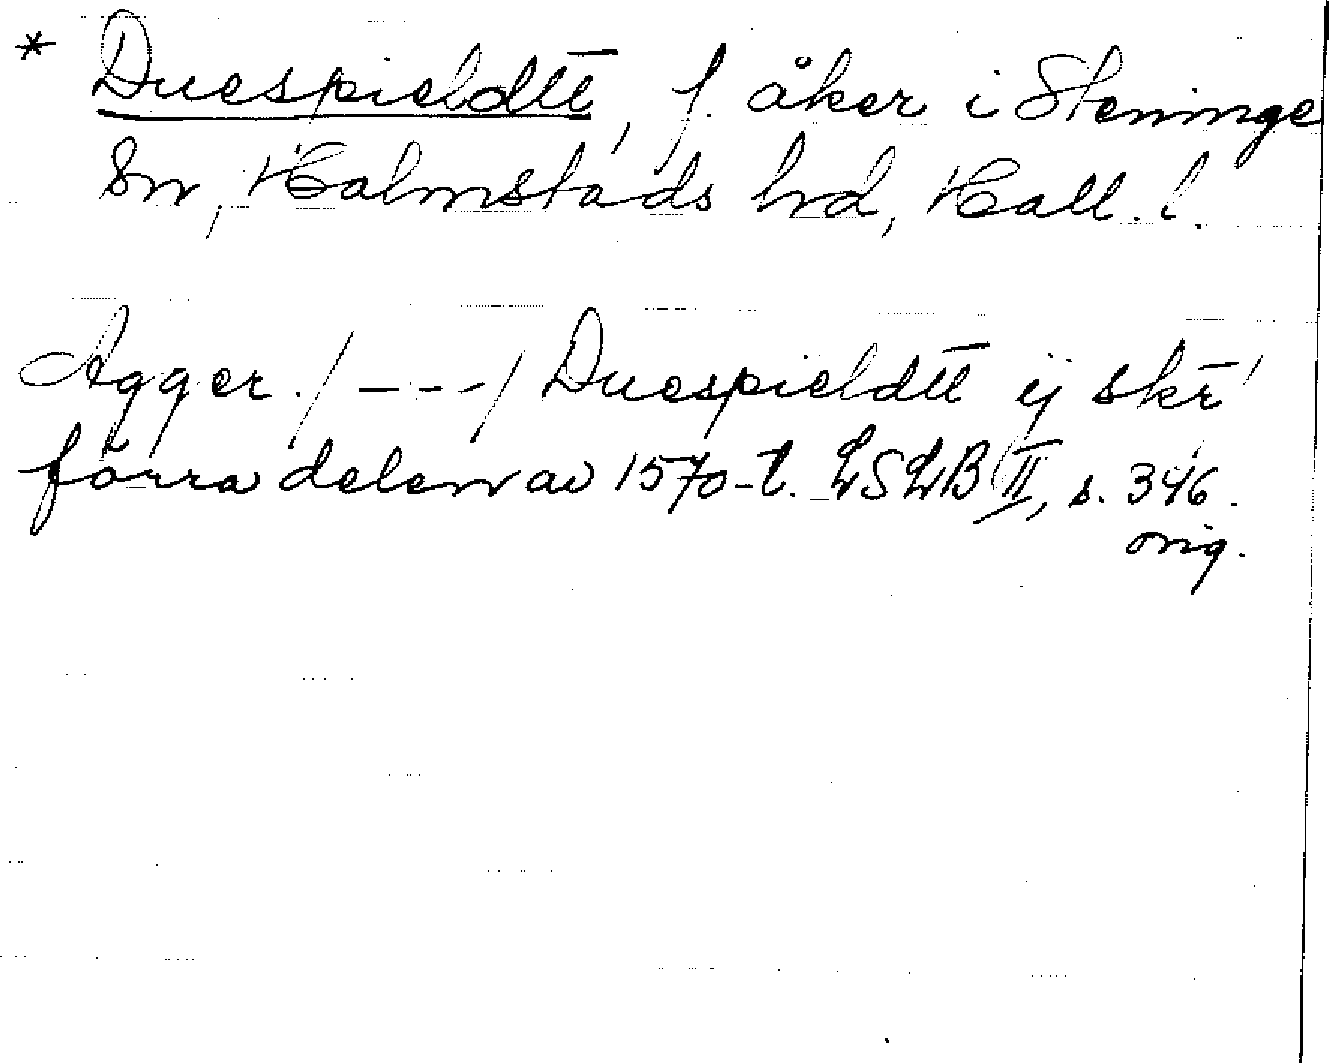 * Duespieldtt̄, f. åker i Steninge
sn, Halmstads hrd, Hall. l.
Agger. /---/ Duespieldtt̄ ij skr̄
förra delen av 1570-t. LSLB II, s. 346.
orig.